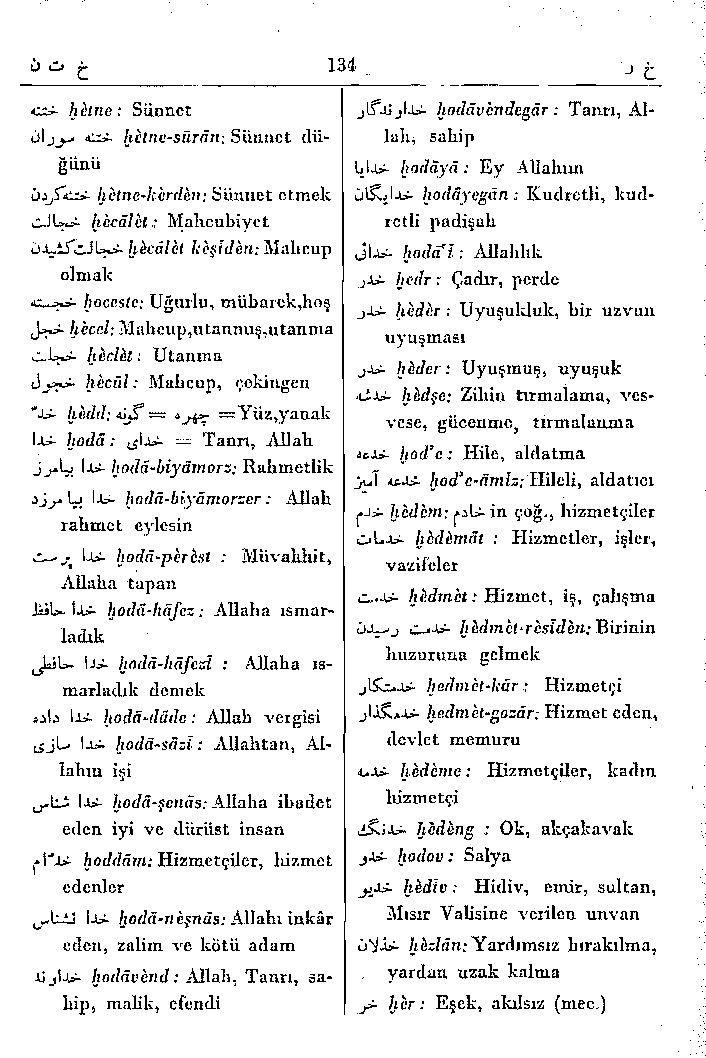 خ ت ن
134
خ ر
ختنه ḫètne: Sünnet
ختنه سوران ḫètne-sūrān: Sünnet dü-
ğünü
ختنه‌کردن ḫètne-kèrdèn: Sünnet etmek
خجالت ḫècālèt: Mahcubiyet
خجالت‌کشیدن ḫècālèt kèşīdèn: Mahcup
olmak
خجسته ḫoceste: Uğurlu, mübarek,hoş
خجل ḫècel: Mahcup,utanmış,utanma
خجلت ḫèclèt: Utanma
خجول ḫècūl: Mahcup, çekingen
خدّ ḫèdd: چهره = گونه = Yüz,yanak
خدا ḫodā: خدای = Tanrı, Allah
خدا بیامرز ḫodā-biyāmorz: Rahmetlik
خدا بیامرزد ḫodā-biyāmorzer: Allah
rahmet eylesin
خدا پرست ḫodā-pèrèst : Müvahhit,
Allaha tapan
خدا حافظ ḫodā-hāfez: Allaha ısmar-
ladık
خدا حافظی ḫodā-hāfezī : Allaha ıs-
marladık demek
خدا داده ḫodā-dāde: Allah vergisi
خدا سازی ḫodā-sāzī: Allahtan, Al-
lahın işi
خدا شناس ḫodā-şenās: Allaha ibadet
eden iyi ve dürüst insan
خدّام ḫoddām: Hizmetçiler, hizmet
edenler
خدا نشناس ḫodā-nèşnās: Allahı inkâr
eden, zalim ve kötü adam
خداوند ḫodāvènd: Allah, Tanrı, sa-
hip, malik, efendi
خداوندگار ḫodāvèndegār: Tanrı, Al-
lah, sahip
خدایا ḫodāyā: Ey Allahım
خدایگان ḫodāyegān: Kudretli, kud-
retli padişah
خدائی ḫodā'ī: Allahlık
خدر ḫedr: Çadır, perde
خدر ḫèdèr: Uyuşukluk, bir uzvun
uyuşması
خدر ḫèder: Uyuşmuş, uyuşuk
خدشه ḫèdşe: Zihin tırmalama, ves-
vese, gücenme, tırmalanma
خدعه ḫod'e: Hile, aldatma
خدعه آمیز ḫod'e-āmīz: Hileli, aldatıcı
خدم ḫèdèm: خادم in çoğ., hizmetçiler
خدمات ḫèdèmāt : Hizmetler, işler,
vazifeler
خدمت ḫèdmèt: Hizmet, iş, çalışma
خدمت رسیدن ḫèdmèt-rèsīdèn: Birinin
huzuruna gelmek
خدمتکار ḫedmèt-kār: Hizmetçi
خدمتگذار ḫedmèt-gozār: Hizmet eden,
devlet memuru
خدمه ḫèdème: Hizmetçiler, kadın
hizmetçi
خدنگ ḫèdèng : Ok, akçakavak
خدو ḫodov: Salya
خدیو ḫèdīv: Hidiv, emir, sultan,
Mısır Valisine verilen unvan
خذلان ḫèzlān: Yardımsız bırakılma,
yardan uzak kalma
خر ḫèr: Eşek, akılsız (mec.)